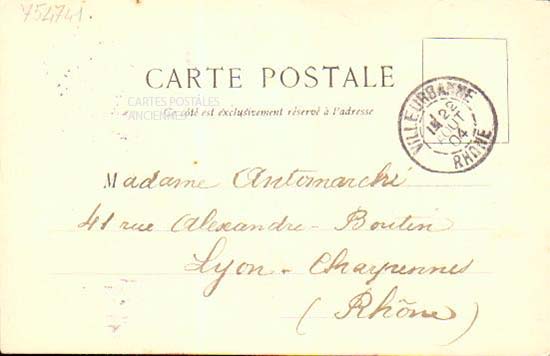 754741
CARTE POSTALE
CARTES POSTALES
ANCIENNES
Ce côté est exclusivement réservé à l'adresse
VILLEURBANNE
AOUT
04
RHÔNE
Madame Antomarchi
41 rue Alexandre-Boutin
Lyon-Charpennes
(Rhône)